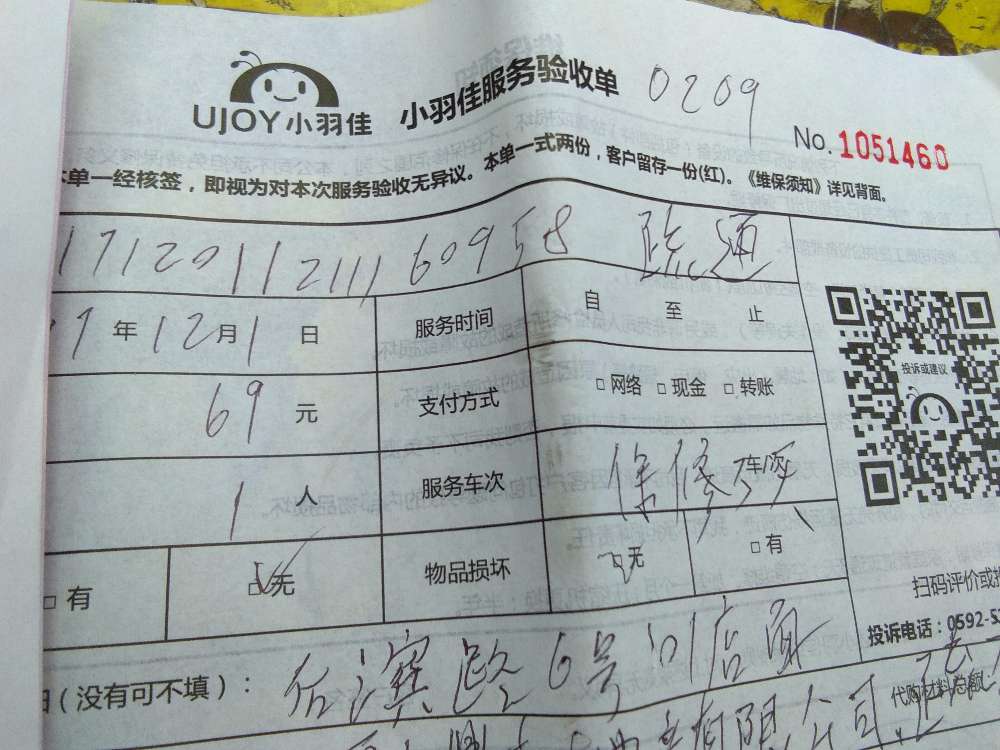 UJOY小羽佳 小羽佳服务验收单 0209
No. 1051460
本单一经核签，即视为对本次服务验收无异议。本单一式两份，客户留存一份(红)。《维保须知》详见背面。
17120112111160958 疏通
年12月1日 服务时间 自 至 止
投诉或建议
69元 支付方式 □网络 □现金 □转账
1人 服务车次 保修 车次
□有 □无 物品损坏 □无 □有
扫码评价或投
投诉电话：0592-5
(没有可不填)： 路6号 店面
代购材料总额
有限公司